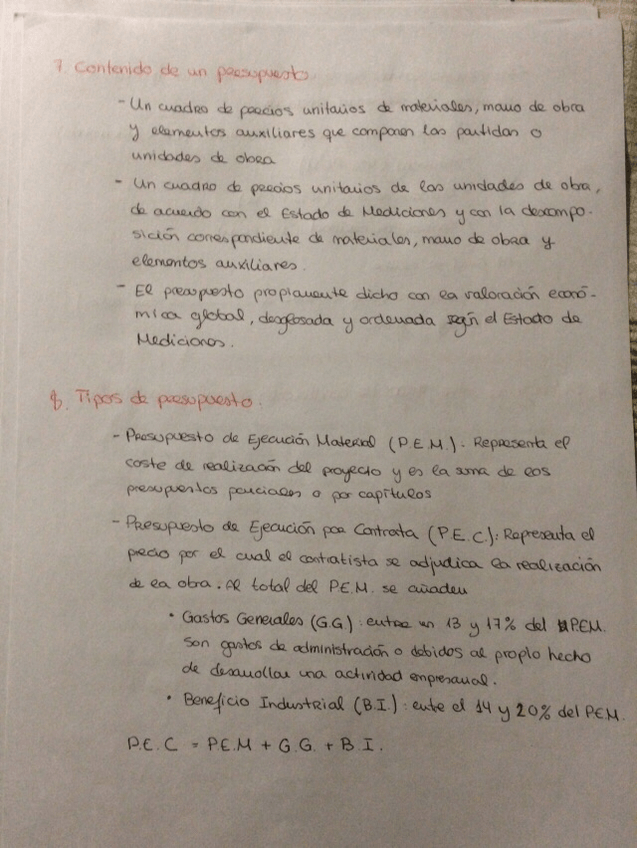 7. Contenido de un presupuesto.
- Un cuadro de precios unitarios de materiales, mano de obra
y elementos auxiliares que componen las partidas o
unidades de obra
- Un cuadro de precios unitarios de las unidades de obra,
de acuerdo con el Estado de Mediciones y con la descompo-
sición correspondiente de materiales, mano de obra y
elementos auxiliares.
- El presupuesto propiamente dicho con la valoración econó-
mica global, desglosada y ordenada según el Estado de
Mediciones.
8. Tipos de presupuesto.
- Presupuesto de Ejecución Material (P.E.M.). Representa el
coste de realización del proyecto y es la suma de los
presupuestos parciales o por capítulos
- Presupuesto de Ejecución por Contrata (P.E.C.): Representa el
precio por el cual el contratista se adjudica la realización
de la obra. Al total del P.E.M. se añaden
• Gastos Generales (G.G.): entre un 13 y 17% del P.E.M.
Son gastos de administración o debidos al propio hecho
de desarrollar una actividad empresarial.
• Beneficio Industrial (B.I.): entre el 14 y 20% del P.E.M.
P.E.C = P.E.M + G.G. + B.I.